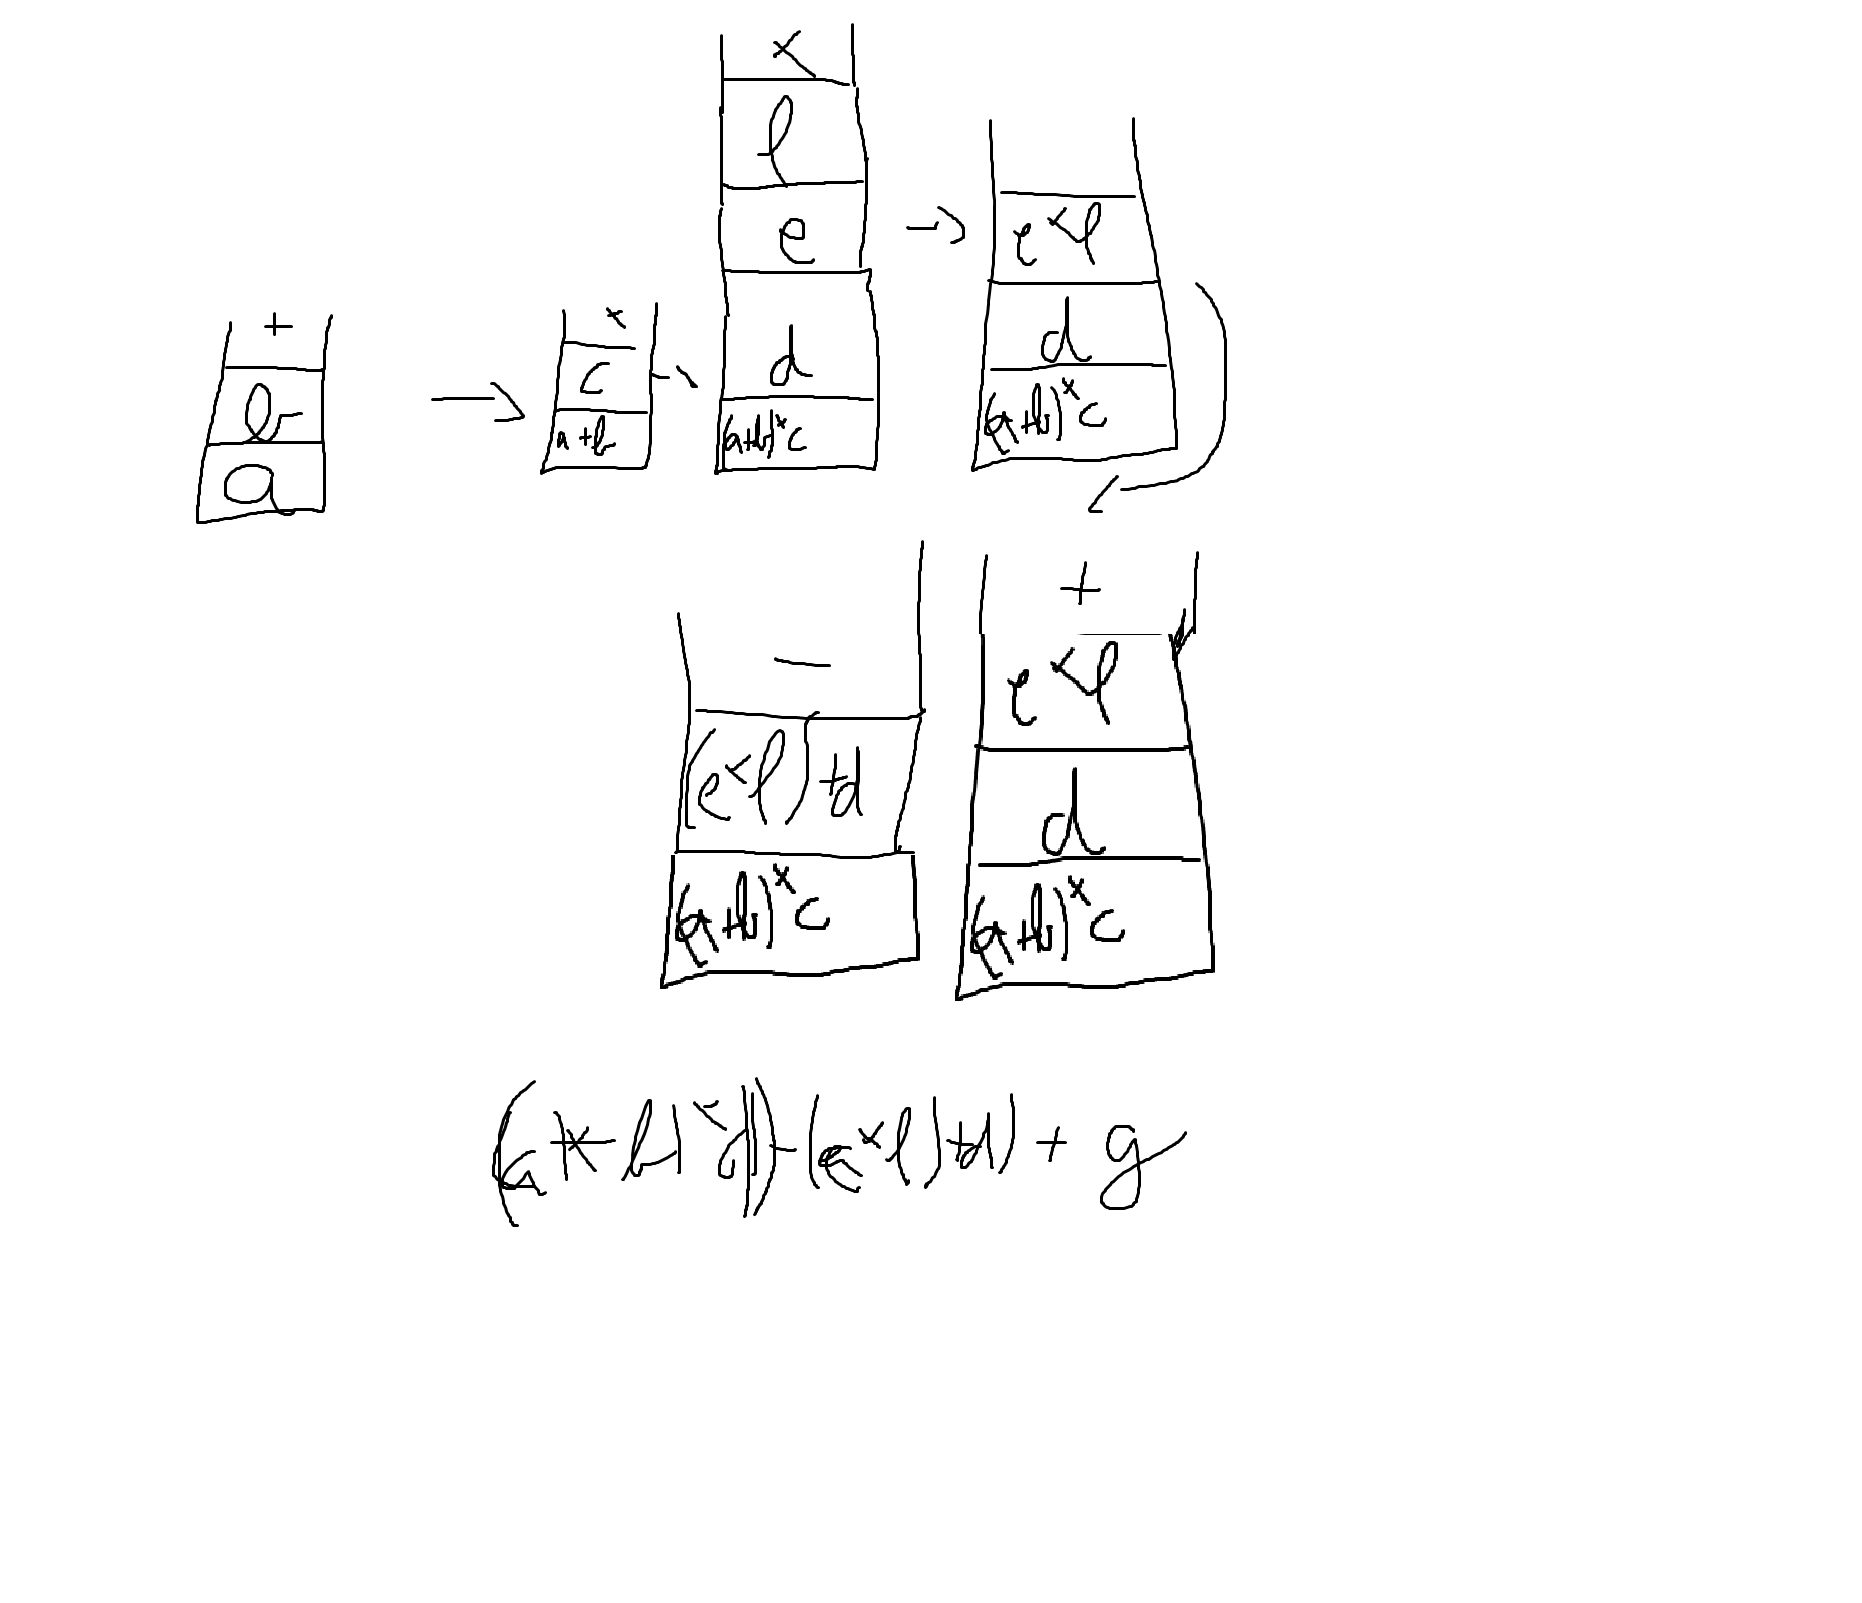 +
b
a
×
c
a+b
×
f
e
d
(a+b)×c
e×f
d
(a+b)×c
+
e×f
d
(a+b)×c
−
(e×f)+d
(a+b)×c
+ g